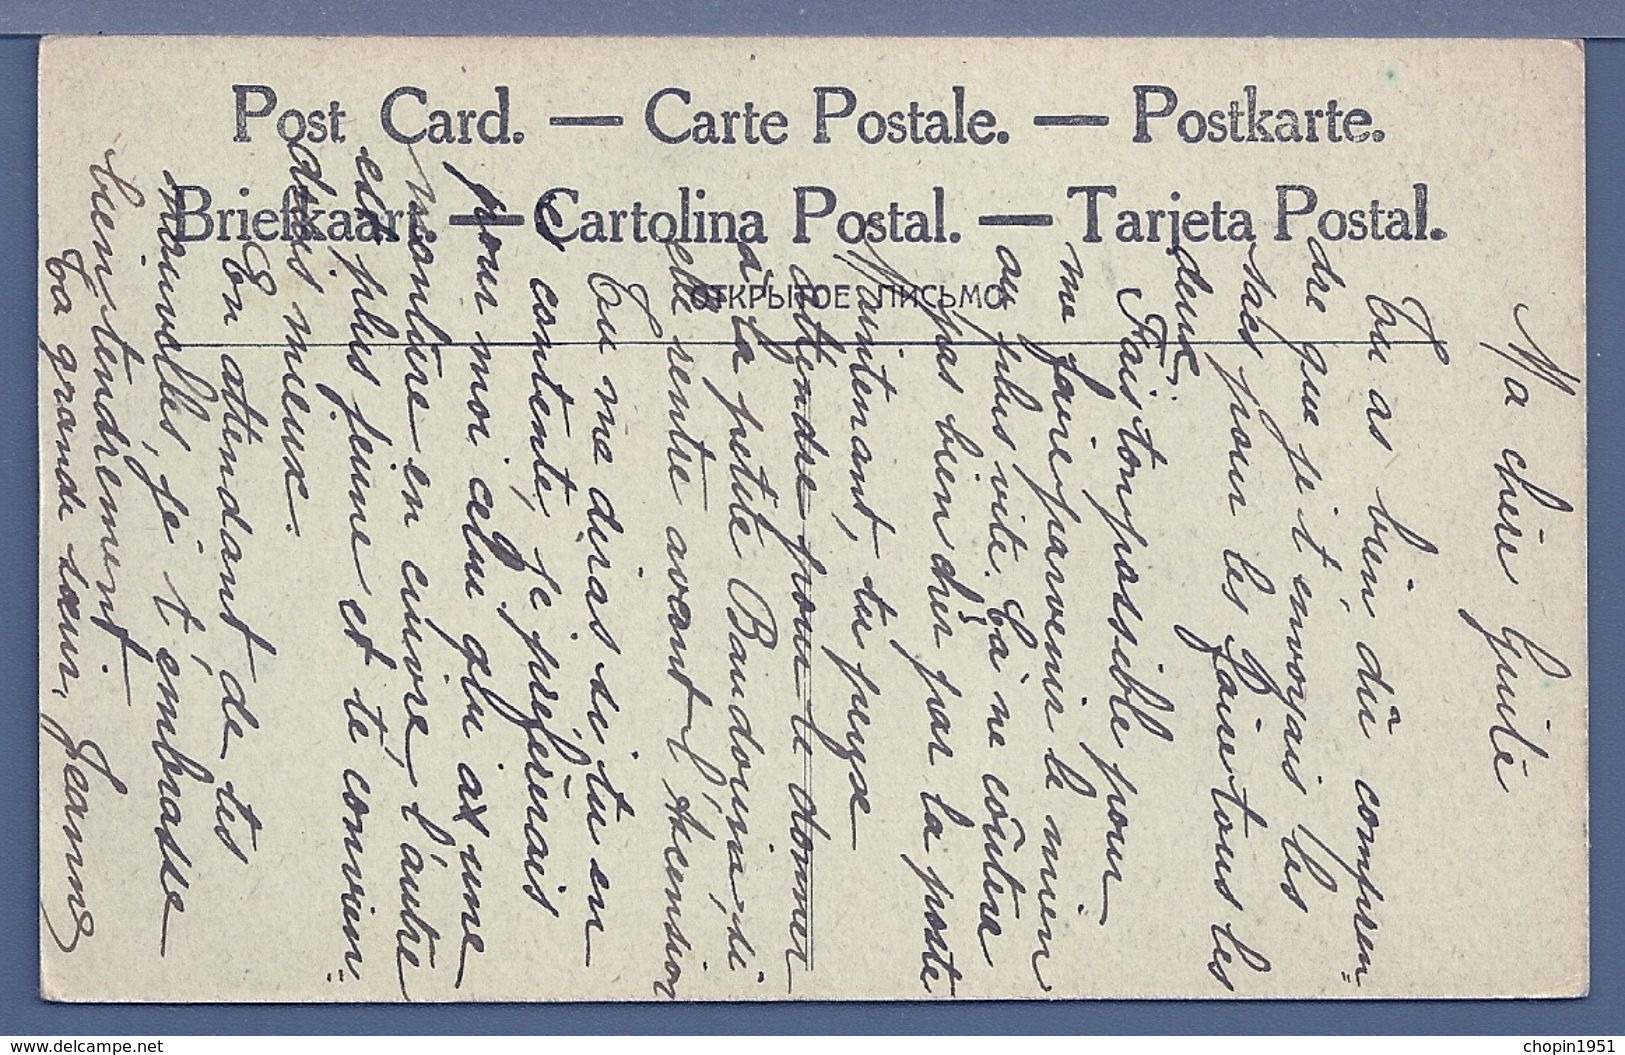 Post Card. — Carte Postale. — Postkarte.
Briefkaart. — Cartolina Postal. — Tarjeta Postal.
ОТКРЫТОЕ ПИСЬМО
Ma chère Guite
Tu as bien dû compren=
dre que je t'envoyais les
sacs pour les faire tous les
deux.
Fais ton possible pour
me faire parvenir le mien
au plus vite. Ça ne coûtera
pas bien cher par la poste
Maintenant, tu peux
attendre pour le donner
à la petite Baudouin, si
elle rentre avant l'Ascension
Tu me diras si tu en
es contente, je préférerais
pour moi celui qui a une
monture en cuivre, l'autre
est plus jeune et te convien=
drais mieux.
En attendant de tes
nouvelles, je t'embrasse
bien tendrement.
Ta grande sœur, Jeanne
www.delcampe.net
chopin1951